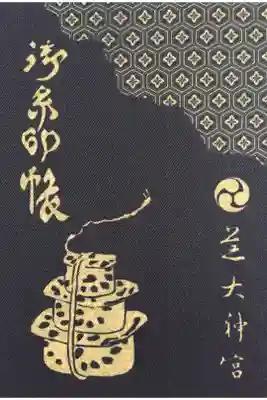 芝大神宮
御朱印帳